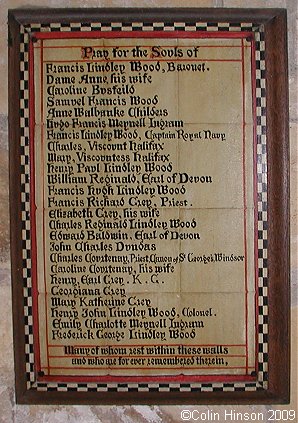 Pray for the Souls of
Francis Lindley Wood, Baronet.
Dame Anne, his wife
Caroline Busfeild
Samuel Francis Wood
Anne Walbanke Childers
Hugo Francis Meynell Ingram
Francis Lindley Wood, Captain Royal Navy
Charles, Viscount Halifax
Mary, Viscountess Halifax
Henry Paul Lindley Wood
William Reginald, Earl of Devon
Francis Hugh Lindley Wood
Francis Richard Grey, Priest.
Elizabeth Grey, his wife
Charles Reginald Lindley Wood
Edward Baldwin, Earl of Devon
John Charles Dundas
Charles Courtenay, Priest, Canon of St George's, Windsor
Caroline Courtenay, his wife
Henry, Earl Grey. K. G.
Georgiana Grey
Mary Katherine Grey
Henry John Lindley Wood, Colonel.
Emily Charlotte Meynell Ingram
Frederick George Lindley Wood
Many of whom rest within these walls
and who are for ever remembered therein.
©Colin Hinson 2009